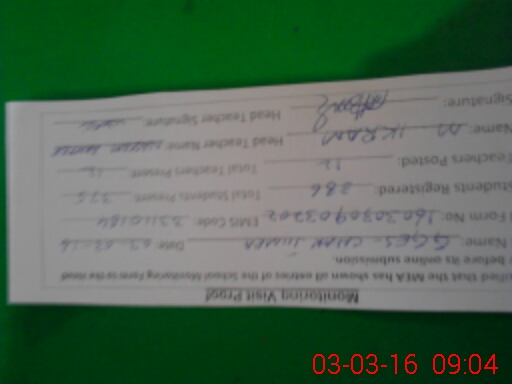 Monitoring Visit Proof
ified that the MEA has shown all entries of the School Monitoring Form to the Head
before its online submission.
Name: GGES - CHAK JUMMA Date: 03-03-16
Form No: EMIS Code: 33110184
Students Registered: 386 Total Students Present: 375
Teachers Posted: 12 Total Teachers Present: 12
Name: M IKRAM Head Teacher Name:
Signature: Head Teacher Signature:
03-03-16 09:04